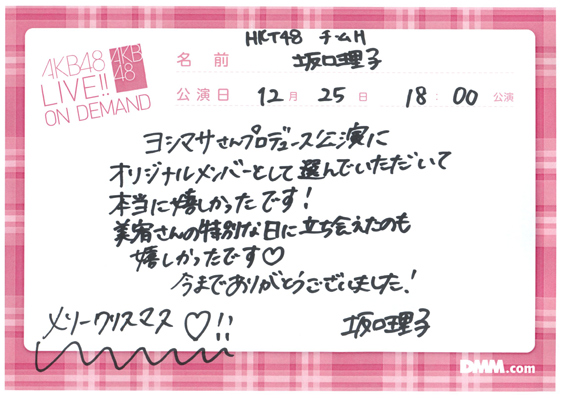 AKB48
LIVE!!
ON DEMAND
AKB
48
名 前
HKT48 チームH
坂口理子
公演日 12月 25日 18:00 公演
ヨシマサさんプロデュース公演に
オリジナルメンバーとして選んでいただいて
本当に嬉しかったです!
美宥さんの特別な日に立ち会えたのも
嬉しかったです♡
今までありがとうございました!
メリークリスマス♡!!
坂口理子
DMM.com